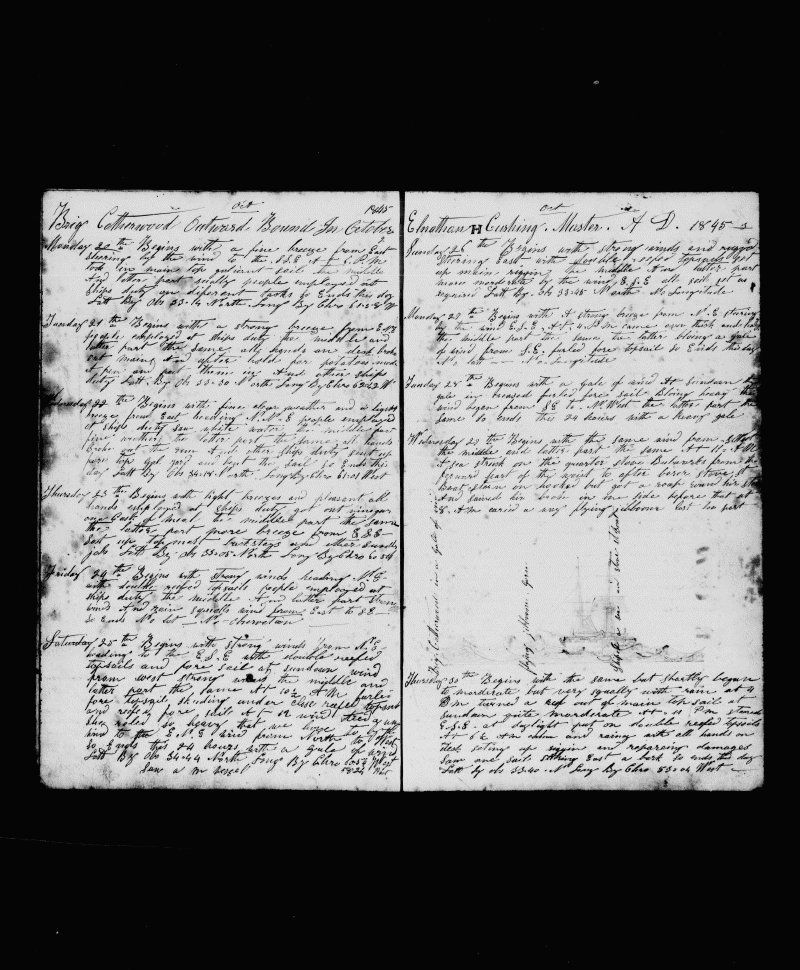 Oct 1845
Brig Catherwood Outward Bound In October
Monday 20th Begins with a fine breeze from East
Stearing by the wind to the S.S.E At 6 P.M
main top gallant sail the middle
And later part people employed at
Ships duty on different jobs so Ends this day
Latt By Obs 33-14 North Long By Chro West
Tuesday 21th Begins with a strong breeze from E.N.E
people employed at ships duty the middle and
latter part the same all hands on deck broke
out main and after hold for potatoes made
A pen and put them in And other ships
duty Latt. By Obs 33-30 North Long By Chro 62-42 W
22th Begins with fine clear weather and a light
breeze from East heading N.N.E people employed
at ships duty saw white water the middle part
fine weather the latter part the same All hands
Broke out the run And other ships duty sent up
yard and bent the sail So Ends this
day Latt By Obs North. Long By Chro 61-01 West
Thursday 23th Begins with light breezes and pleasant all
hands employed at Ships duty got out vinegar
one Cask of bread the middle part the same
the latter part more breeze from E.S.E
Set up top mast backstays and other Sundry
jobs Latt By Obs 33-05 North Long By Chro
Friday 24th Begins with strong winds heading N.E
with double reefed topsails people employed at
ships duty the middle And latter part strong
wind And rain squalls wind from East to S.E
so Ends No Lat — No
Saturday 25th Begins with strong winds from N.E
heading to the E.S.E with double reefed
topsails and fore sail at sundown wind
from west strong the middle and
latter part the same At 10½ A.M furled
fore topsail under close reefed topsail
and reefed fore sail at 12 wind
she rolled so heavy that we
wind to the E.N.E wind from North to West
so Ends this 24 hours with a gale of wind
Latt By Obs 34-44 North Long By Chro West
Saw a m vessel
Oct
Elnathan H Cushing. Master. A D. 1845
Sunday 26th Begins with strong winds and rugged
Stearing East with double reefed topsails set
up main the middle And latter part
more mordorate by the wind E.S.E all sail set as
required Latt By. Obs 33-45 North No Longitude.
Monday 27th Begins with A strong breeze from N.E stearing
by the wind E.S.E. At 4 P.M came over thick and
the middle part the same the latter blowing a gale
of wind from S.E. furled fore topsail so Ends this day
No Latt — No Longitude
Tuesday 28th Begins with a gale of wind At Sundown the
gale in creased furled fore sail Blowing heavy the
wind began from S.E to N. West the latter part the
same so ends this 24 hours with a heavy gale
Wednesday 29th Begins with the same wind from
the middle and latter part the same At 10 A.M
A sea struck on the quarter stove Bulwarks from the
part of the waist to after stove
Boat on hooks but got a roap round her
And saved her in one side before that at
A.M carried a way flying jibboom lost top part
Brig Catherwood in a Gale of
flying jibboom gone
Shipt a sea and stove A boat
Thursday 30th Begins with the same but shortly began
to mordorate but very squally with rain at 4
P.M turned a reef out of maine top sail at
Sundown quite mordorate At 11 P.M steared
E.S.E. at daylight put on double reefed topsails
At 6 A.M all hands on
deck seting up rigin and repareing damages
Saw one sail stearing East a bark so ends this day
Latt by obs 33-40 N Long By Chro West